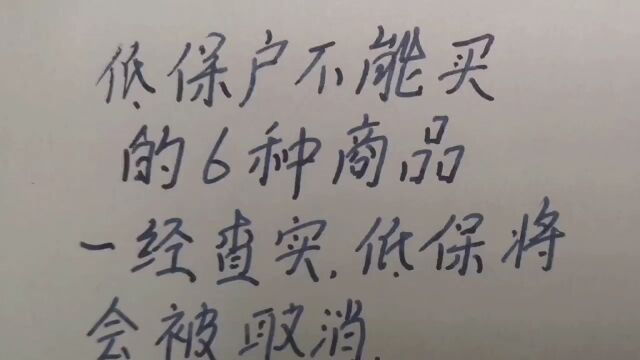 低保户不能买
的6种商品
一经查实.低保将
会被取消.